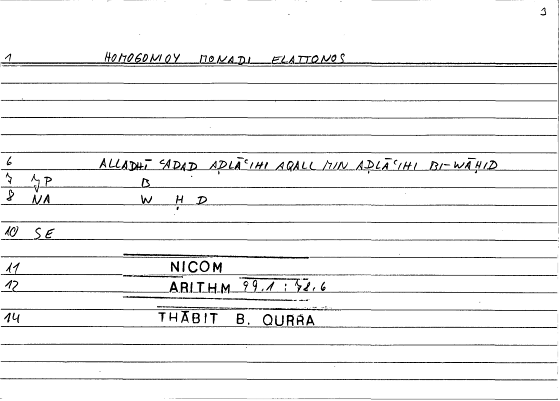 1
1 HOMOGONIOY MONADI ELATTONOS
6 ALLADHĪ ʿADAD AḌLĀʿIHI AQALL MIN AḌLĀʿIHI BI-WĀḤID
7 B
8 NA W Ḥ D
10 SE
11 NICOM
12 ARITHM 99.1 :
14 THĀBIT B. QURRA